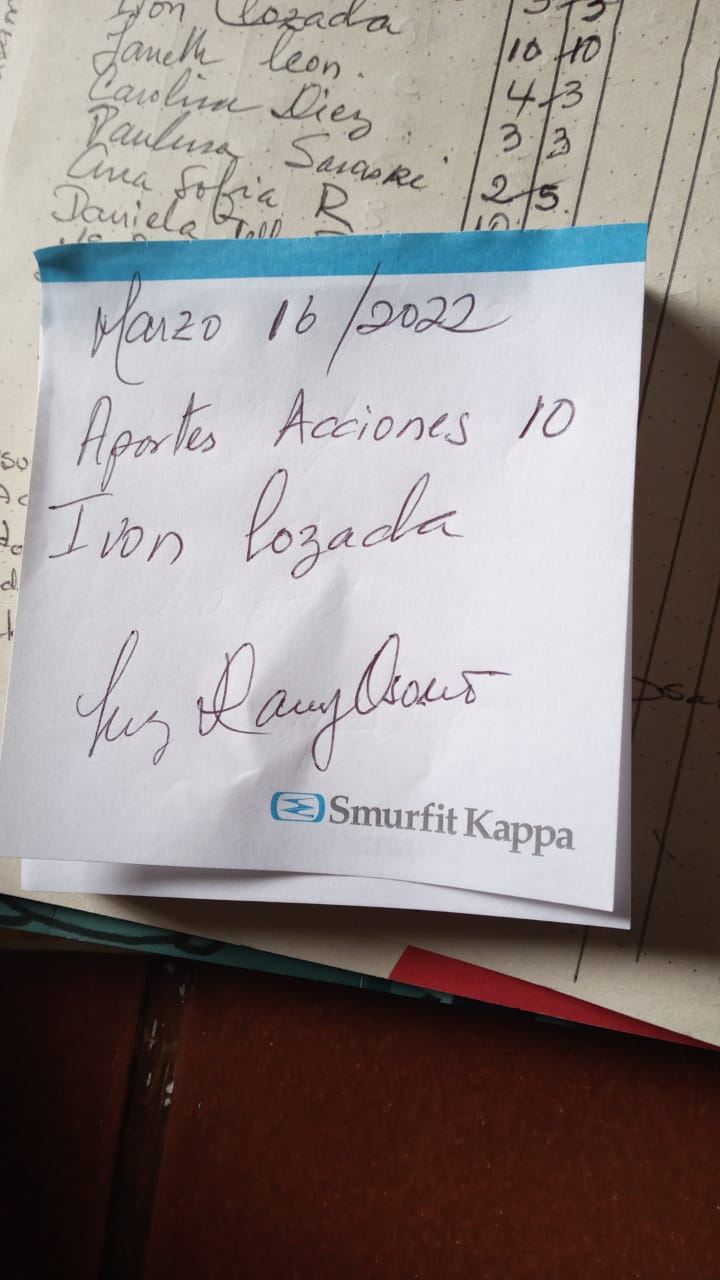 Ivon Lozada 3 3
Janeth Leon. 10 10
Carolina Diez 4 3
Paulina Sarasti 3 3
Ana Sofia R 2 5
Daniela
Marzo 16/2022
Aportes Acciones 10
Ivon Lozada
Luz Dary Osorio
Smurfit Kappa